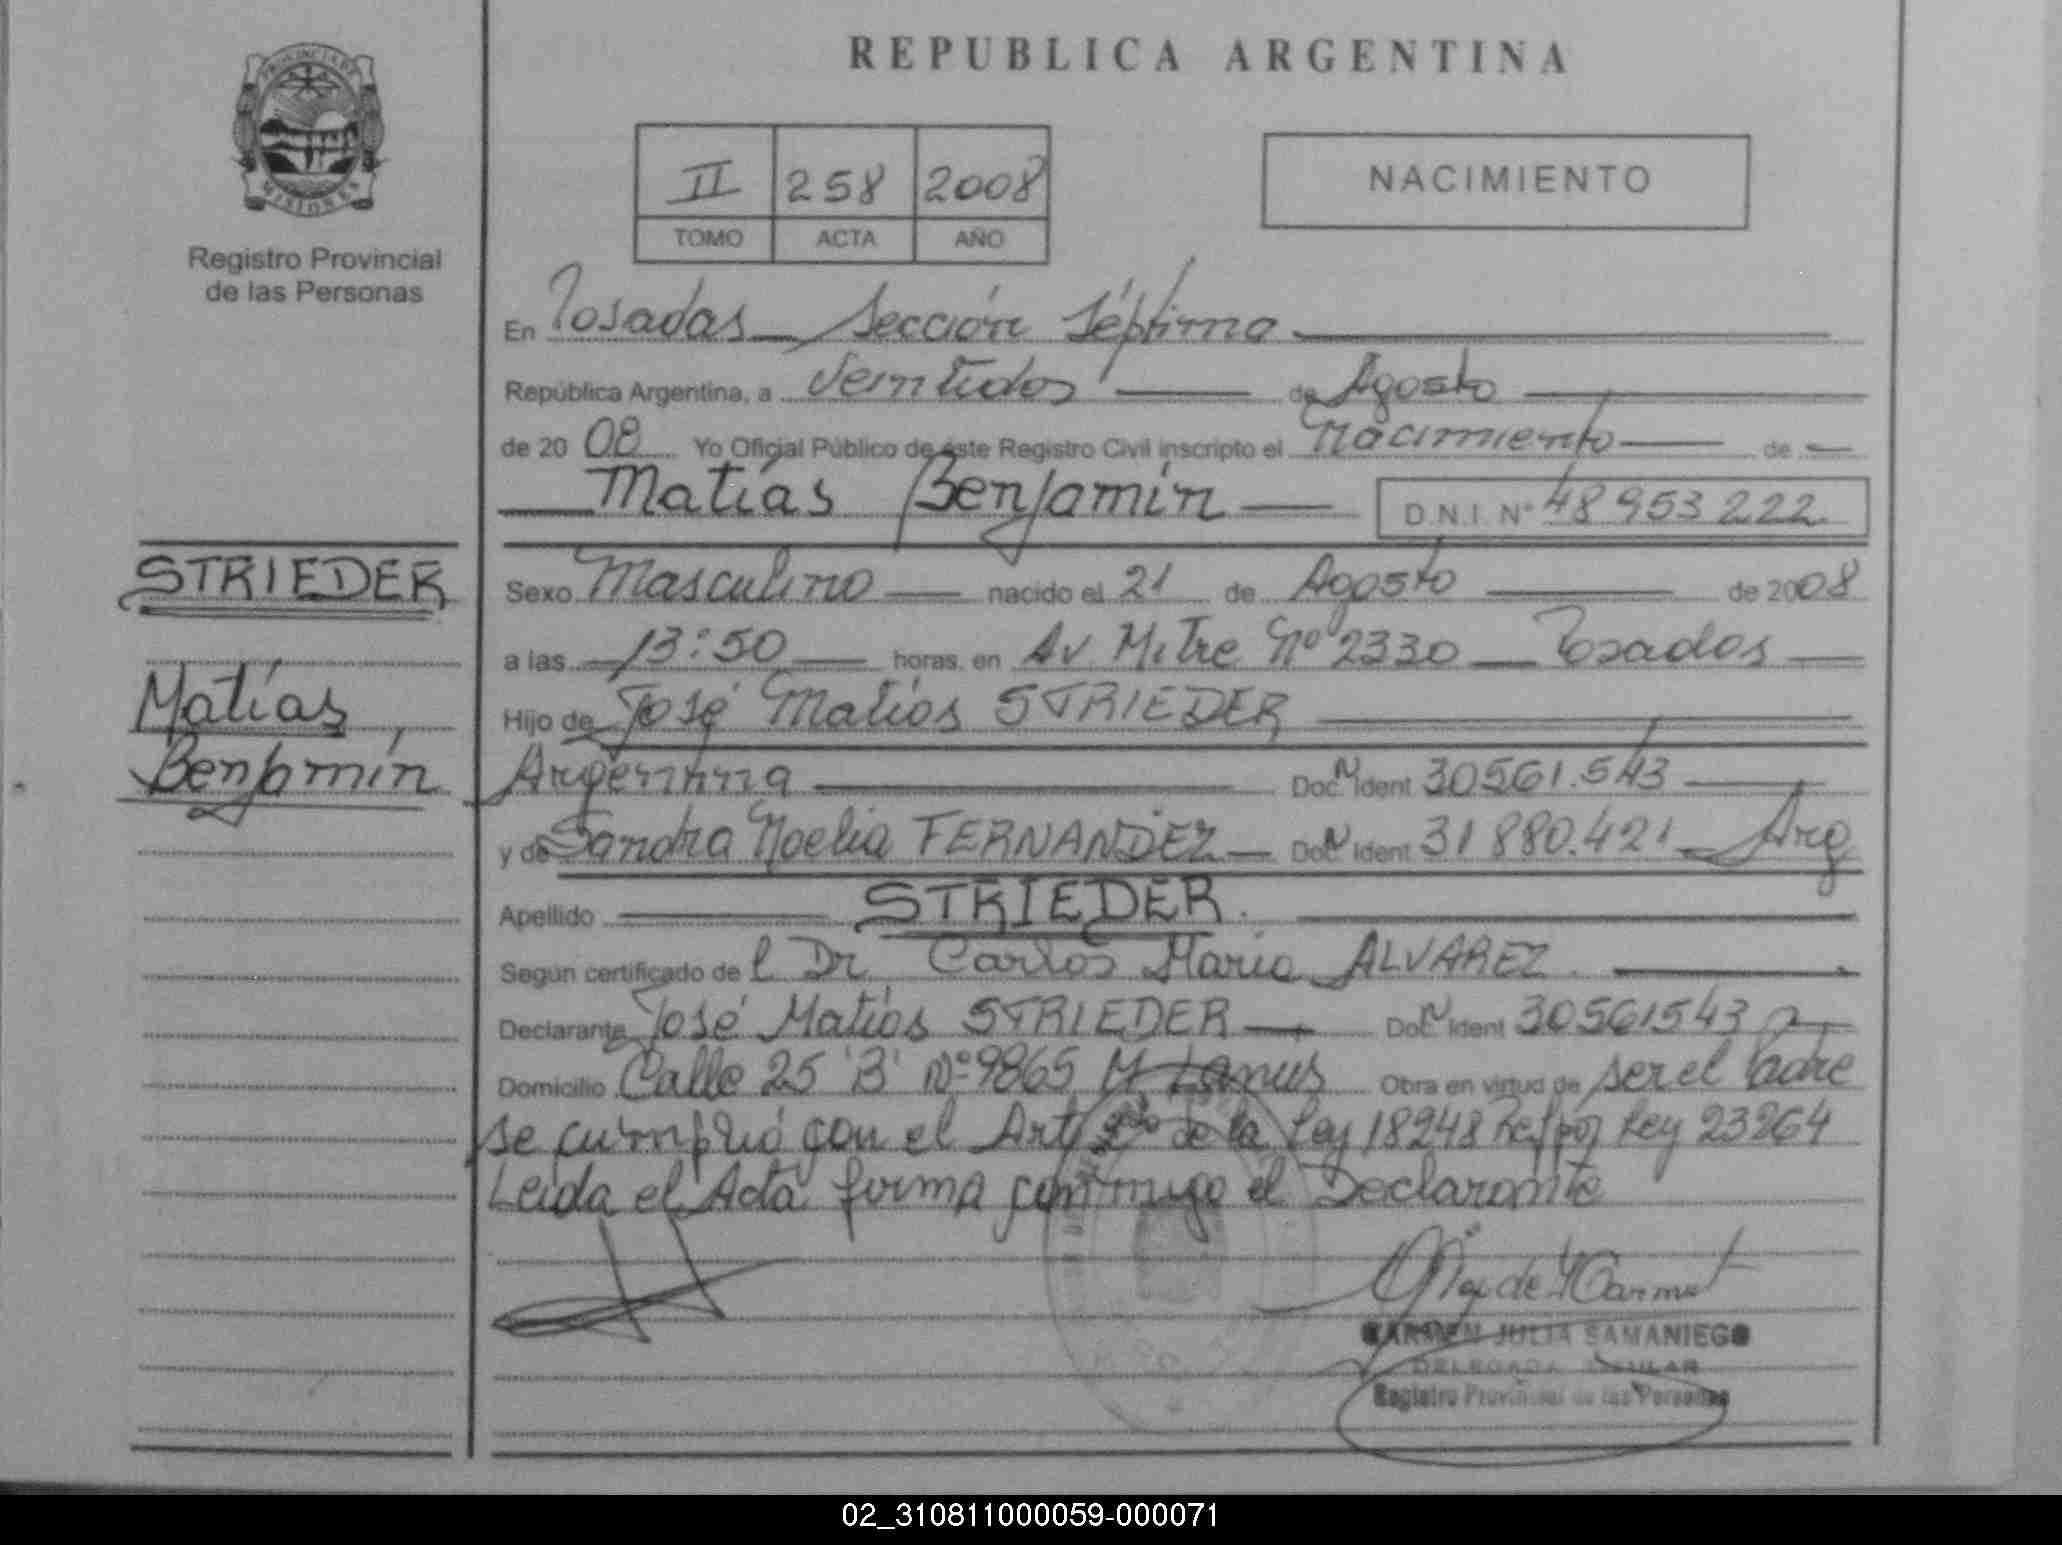 REPUBLICA ARGENTINA
PROVINCIA DE
MISIONES
Registro Provincial
de las Personas
II 258 2008
TOMO ACTA AÑO
NACIMIENTO
En Posadas Sección Séptima
República Argentina, a Veintidos de Agosto
de 2008 Yo Oficial Público de éste Registro Civil inscripto el Nacimiento de
Matías Benjamín D.N.I. Nº 48 953 222
STRIEDER
Matías
Benjamín
Sexo Masculino nacido el 21 de Agosto de 2008
a las 13:50 horas, en Av Mitre Nº 2330 Posadas
Hijo de José Matías STRIEDER
Argentina Doc. Ident 30561.543
y de Sandra Noelia FERNANDEZ Doc. Ident 31 880.421 Arg
Apellido STRIEDER.
Según certificado de l Dr Carlos María ALVAREZ
Declarante José Matías STRIEDER Doc. Ident 30561543
Domicilio Calle 25 'B' Nº 9865 M Lanus Obra en virtud de ser el Padre
se cumplió con el Art 2do de la Ley 18248 Ref por Ley 23264
Leida el Acta firma conmigo el Declarante
CARMEN JULIA SAMANIEGO
DELEGADA TITULAR
Registro Provincial de las Personas
02_310811000059-000071